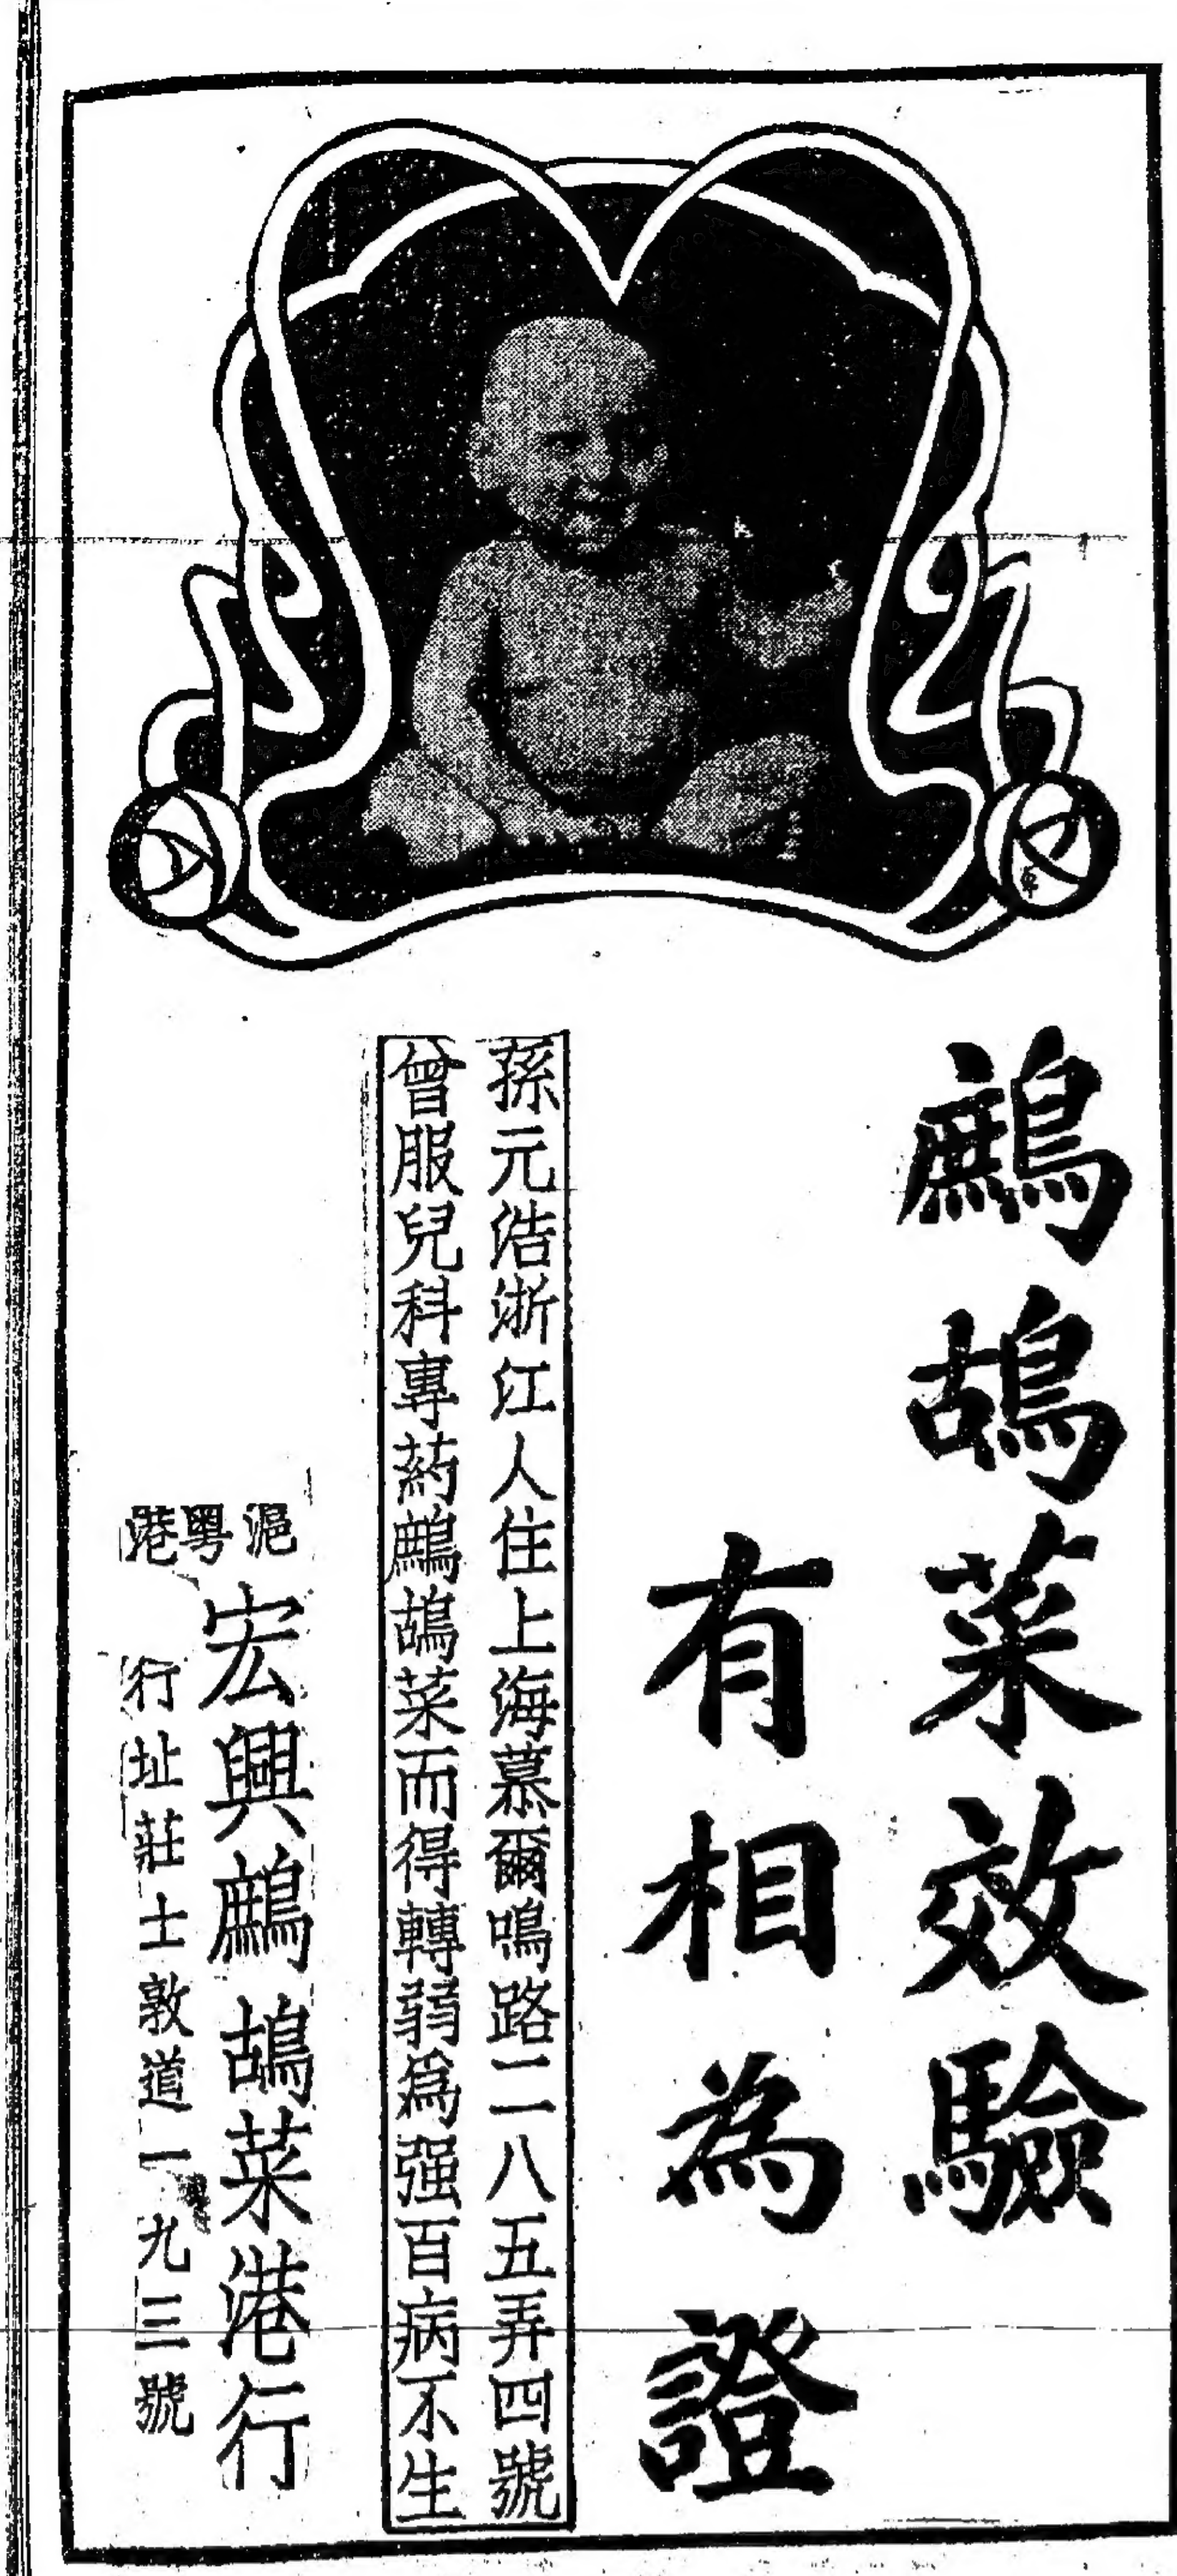 鷓鴣菜效驗
有相為證
孫元浩浙江人住上海慕爾鳴路二八五弄四號
曾服兒科專葯鷓鴣菜而得轉弱爲强百病不生
滬粤港
宏興鷓鴣菜港行
行址莊士敦道一九三號